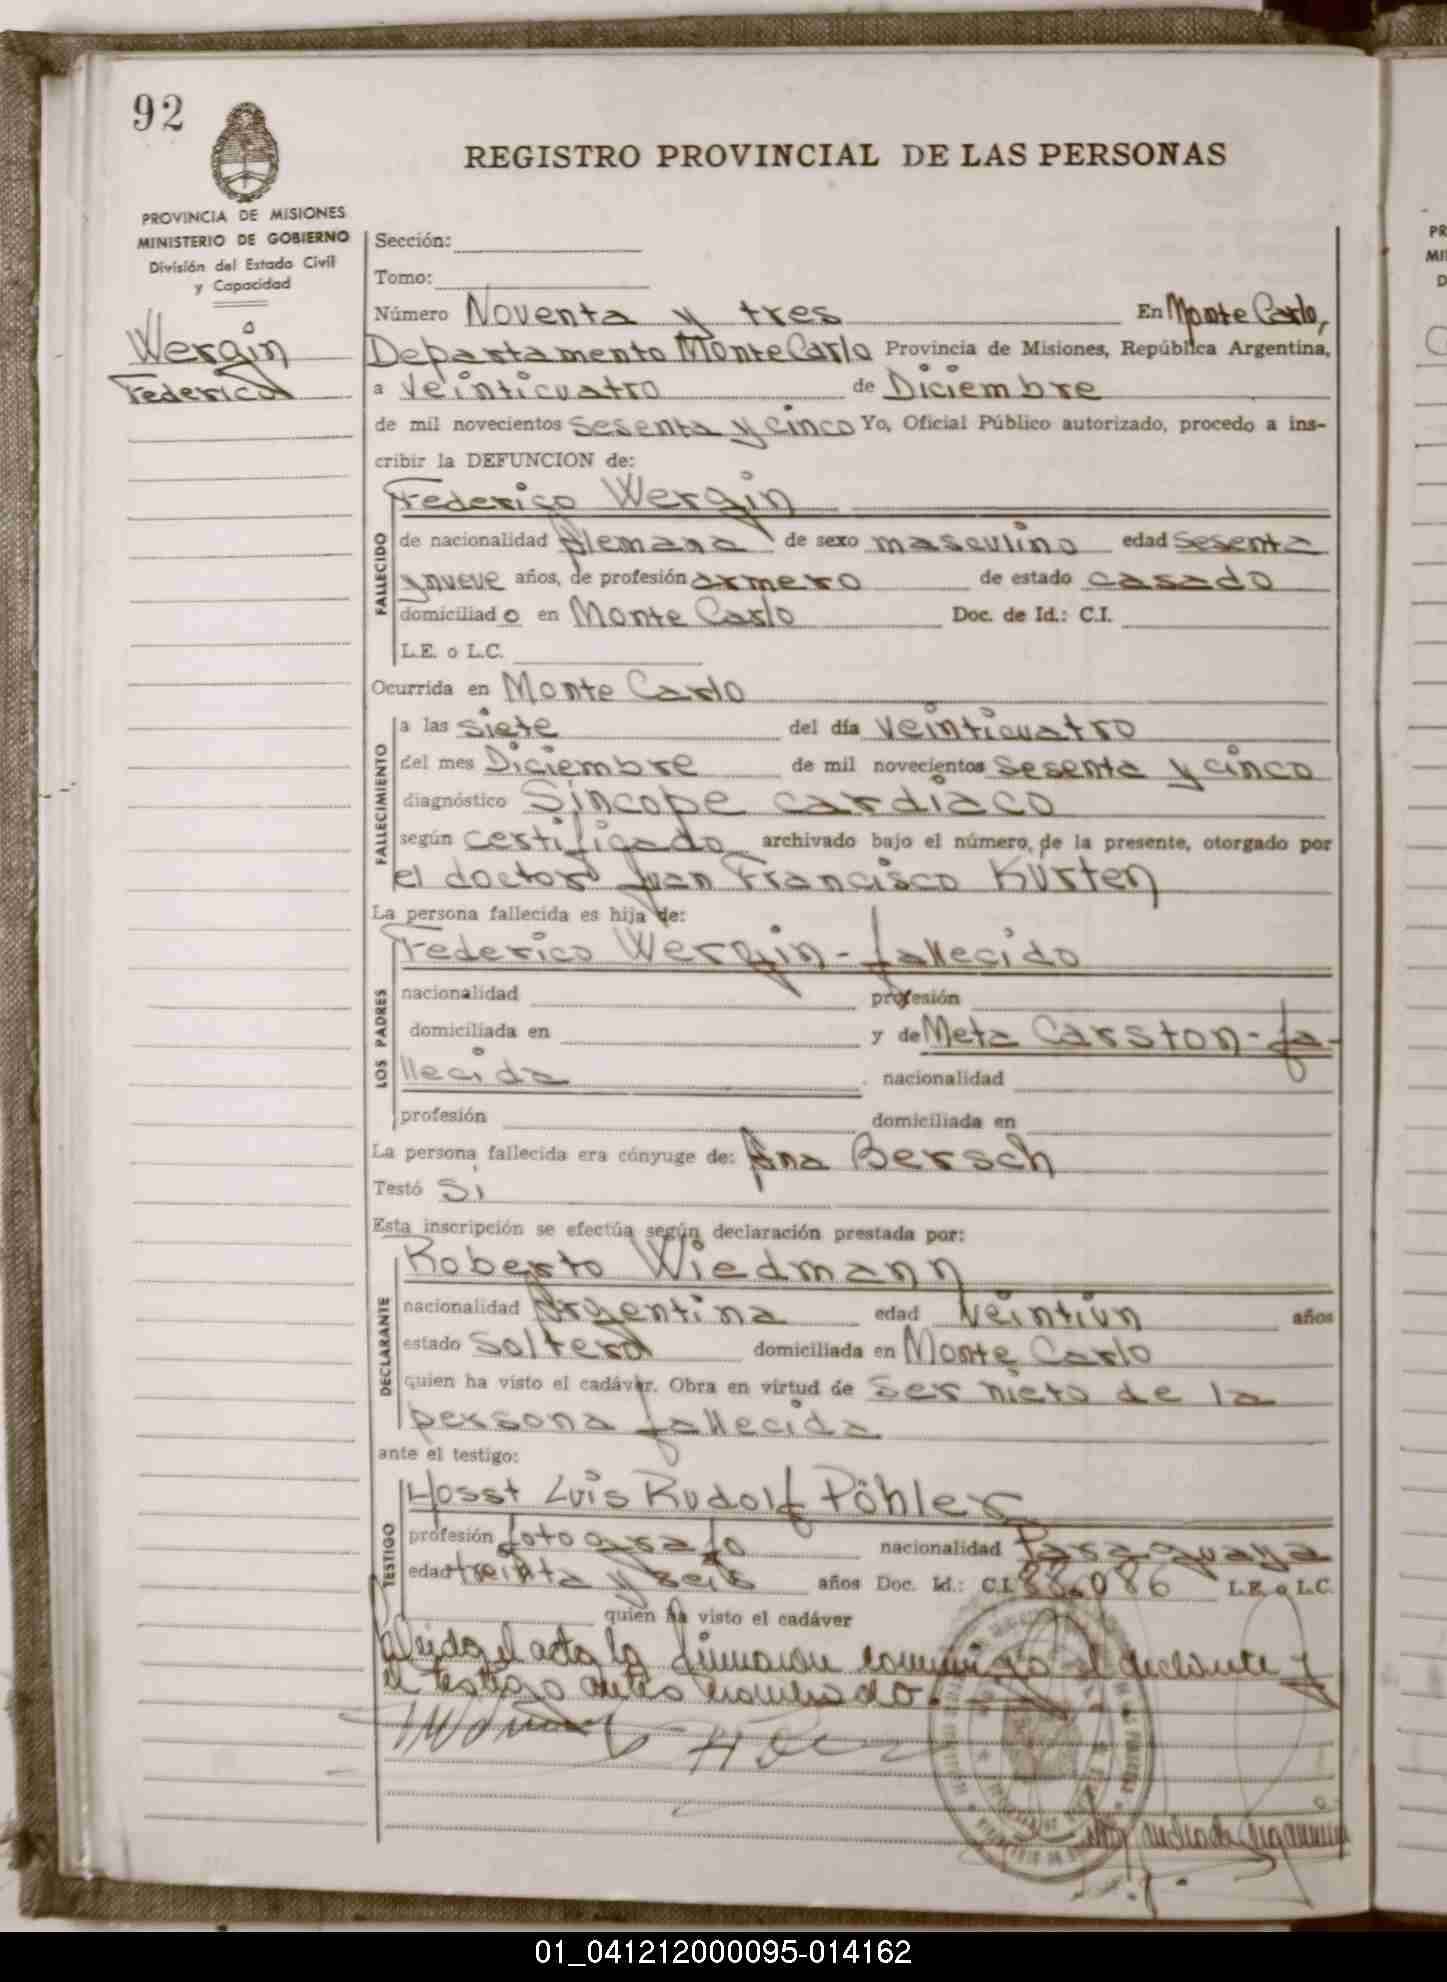 92
REGISTRO PROVINCIAL DE LAS PERSONAS
PROVINCIA DE MISIONES
MINISTERIO DE GOBIERNO
División del Estado Civil
y Capacidad
Wergin
Federico
Sección:
Tomo:
Número Noventa y tres En Monte Carlo,
Departamento Monte Carlo Provincia de Misiones, República Argentina,
a veinticuatro de Diciembre
de mil novecientos sesenta y cinco Yo, Oficial Público autorizado, procedo a ins-
cribir la DEFUNCION de:
Federico Wergin
FALLECIDO
de nacionalidad Alemana de sexo masculino edad sesenta
y nueve años, de profesión armero de estado casado
domiciliado en Monte Carlo Doc. de Id.: C.I.
L.E. o L.C.
Ocurrida en Monte Carlo
FALLECIMIENTO
a las siete del día veinticuatro
del mes Diciembre de mil novecientos sesenta y cinco
diagnóstico Síncope cardíaco
según certificado archivado bajo el número, de la presente, otorgado por
el doctor Juan Francisco Kürten
La persona fallecida es hija de:
Federico Wergin - fallecido
LOS PADRES
nacionalidad profesión
domiciliada en y de Meta Carston - fa-
llecida nacionalidad
profesión domiciliada en
La persona fallecida era cónyuge de: Ana Bersch
Testó Si
Esta inscripción se efectúa según declaración prestada por:
Roberto Wiedmann
DECLARANTE
nacionalidad Argentina edad veintiun años
estado soltero domiciliada en Monte Carlo
quien ha visto el cadáver. Obra en virtud de ser nieto de la
persona fallecida
ante el testigo:
Horst Luis Rudolf Pöhler
TESTIGO
profesión fotografo nacionalidad Paraguaya
edad treinta y seis años Doc. Id.: C.I. 88.086 L.E. o L.C.
quien ha visto el cadáver
Leida el acta la firmaron conmigo el declarante y
el testigo antes nombrado.
01_041212000095-014162